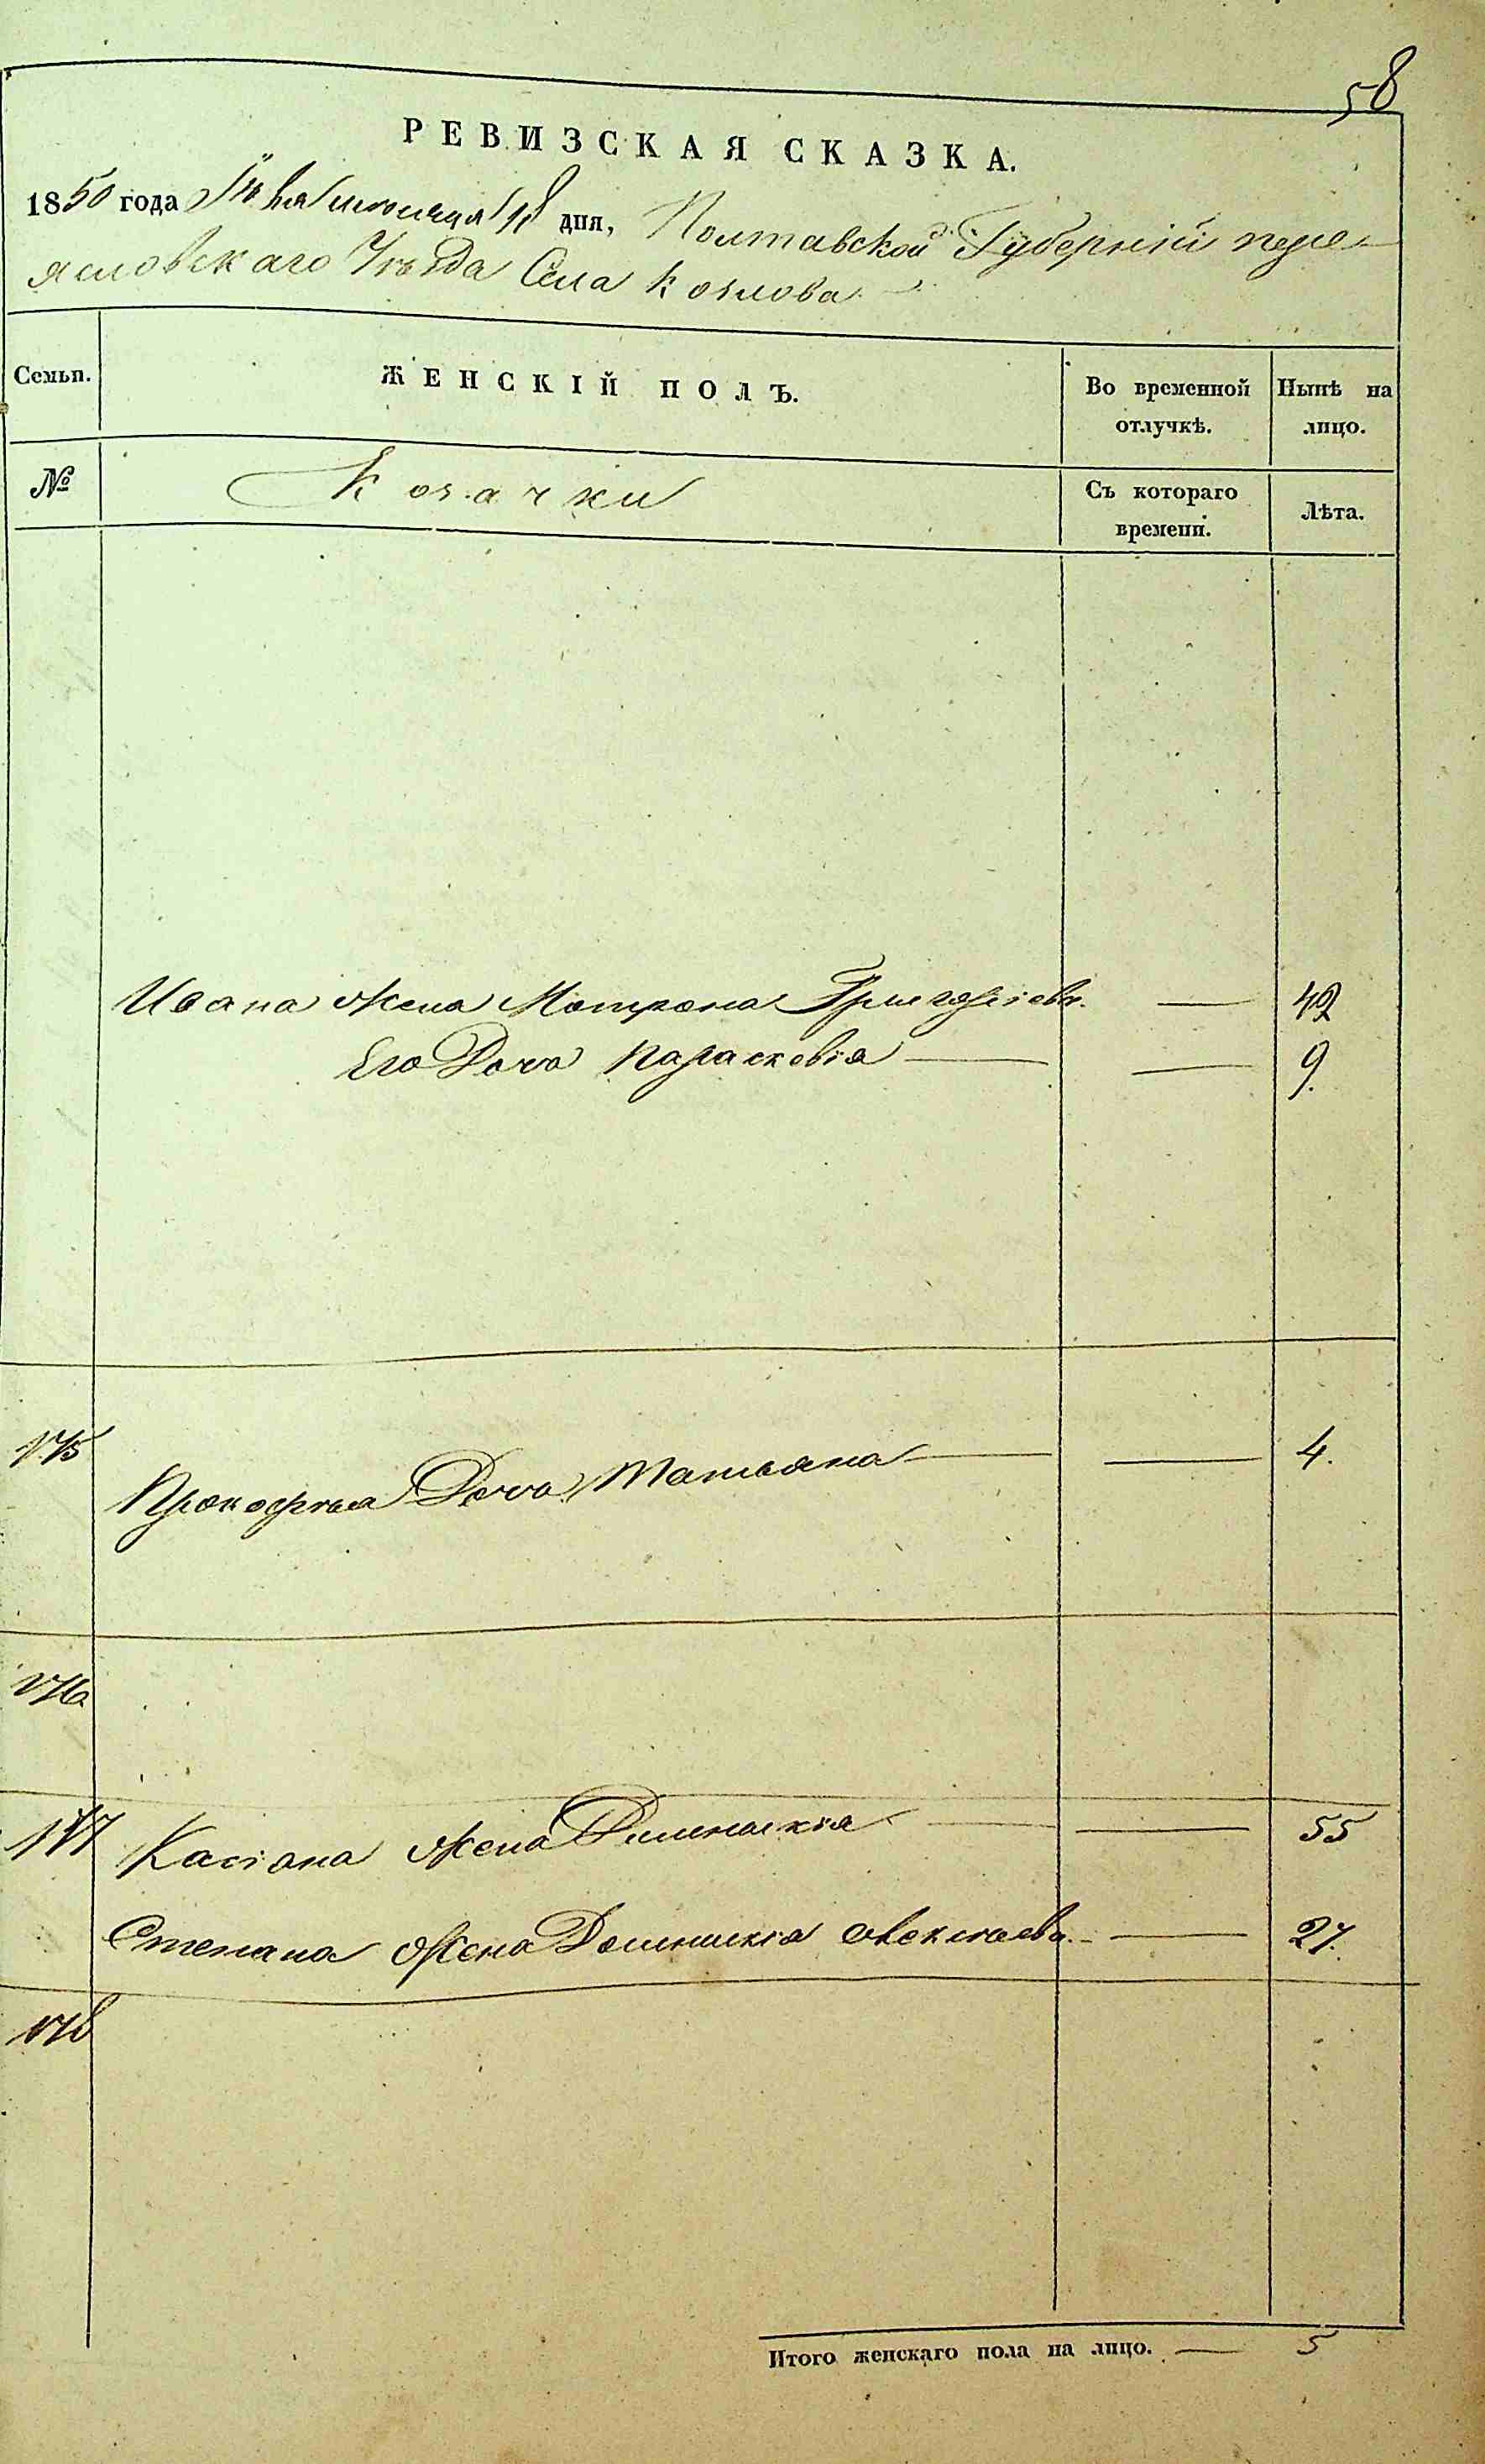 58
РЕВИЗСКАЯ СКАЗКА.
1850 года месяца 18 дня, Полтавской Губерніи пере-
ясловскаго Уѣзда Села Козлова
Семьи. ЖЕНСКІЙ ПОЛЪ. Во временной отлучкѣ. Нынѣ на лицо.
№ Козачки Съ котораго времени. Лѣта.
Ивана жена Мотрона Григоріева. — 42
Его Дочь Параскевія — — 9.
175 Прокофья Дочь Татьяна — — 4.
176
177 Касіана жена — — 55
Степана жена Домникія — 27.
178
Итого женскаго пола на лицо. — 5